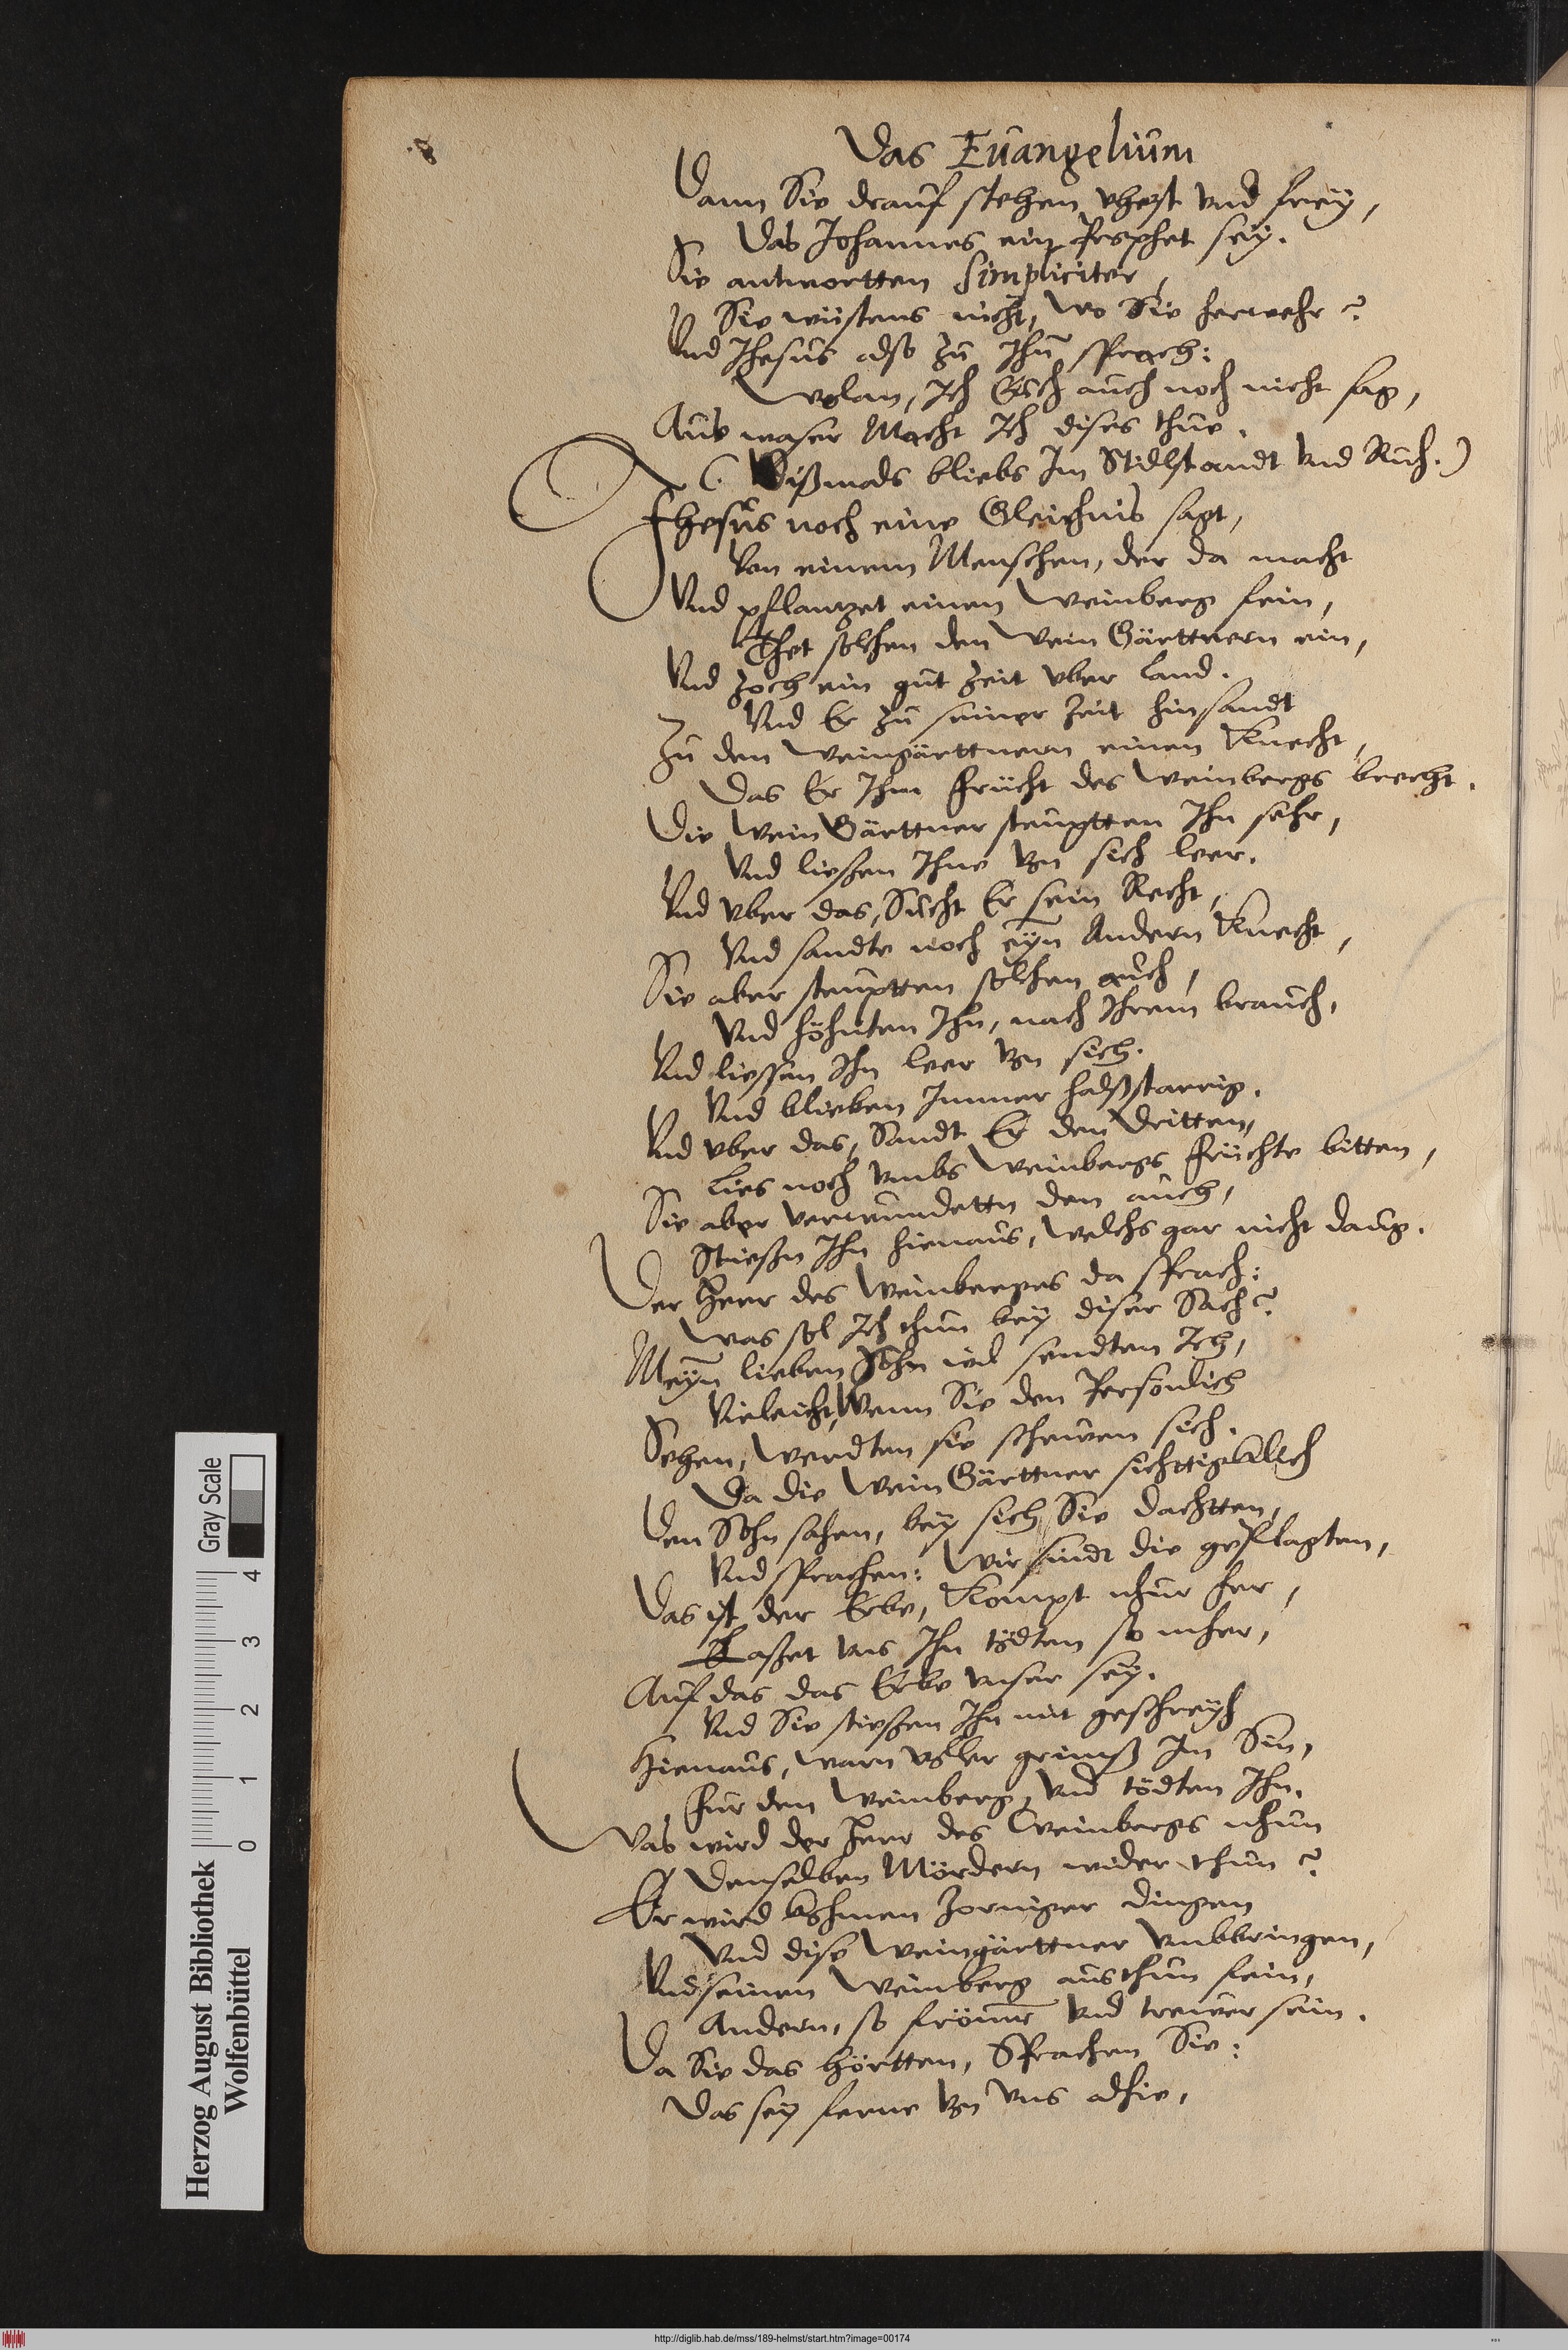 Das Euangelium
Dann Sie drauf stehen vhest vnd frey,
Das Johannes ein Prophet sey.
Sie antwortten Simpliciter,
Sie wüstens nicht, wo Sie herwehr?
Vnd Jhesus also zu Ihn̄ sprach:
Wolan, Ich Euch auch noch nicht sag,
Aus waser Macht Ich dises thue.
(Dißmals bliebs Im Stillstandt vnd Ruh.)
Jhesus noch eine Gleichnis sagt,
Von einem Menschen, der da macht
Vnd pflantzet einen Weinberg fein,
Thet solchen den Wein Gärttnern ein,
Vnd zoch ein gut Zeit vber Land.
Vnd Er zu seiner Zeit hinsandt
Zu den Weingärttnern einen Knecht,
Das Er Ihm Frücht des Weinbergs brecht.
Die Wein Gärttner steuptten Ihn sehr,
Vnd ließen Ihne von sich leer.
Vnd vber das, Sucht Er sein Recht,
Vnd sandte noch eyn Andern Knecht,
Sie aber steuptten solchen auch,
Vnd höhnten Ihn, nach Ihrem brauch,
Vnd liessen Ihn leer von sich.
Vnd blieben Immer halßstarrig.
Vnd vber das, Sandt Er den Dritten,
Lies noch vmbs Weinbergs Früchte bitten,
Sie aber verwundettn den auch,
Stießn Ihn hienaus, welchs gar nicht daug.
Der Herr des Weinberges da sprach:
Was sol Ich thun bey diser Sach?
Meyn lieben Sohn wil sendten Ich,
Vieleicht, Wenn Sie den Persönlich
Sehen, Werdten sie schewen sich.
Da die Wein Gärttner sichttiglich
Den Sohn sahen, bey sich Sie dachtten,
Vnd sprachen: Wir sindt die geplagten,
Das ist der Erbe, Kompt nhur her,
Laßet vns Ihn tödten so mher,
Auf das das Erbe vnser sey.
Vnd Sie stießen Ihn mit geschreyh
Hienaus, warn voller grimß Im Sin,
Für den Weinberg, Vnd tödten Ihn.
Was wird der Herr des Weinbergs nhun
Denselben Mördern wider thun?
Er wird kohmen zorniger dingen
Vnd dise Weingärttner vmbbringen,
Vnd seinen Weinberg austhun fein,
Andern, so frömr̄ vnd trewer sein.
Da Sie das hörtten, Sprachen Sie:
Das sey ferne von vns alhie,
Herzog August Bibliothek
Wolfenbüttel
Gray Scale
0 1 2 3 4
http://diglib.hab.de/mss/189-helmst/start.htm?image=00174